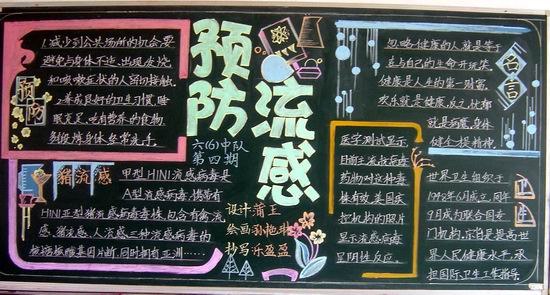 预防流感
六(6)中队
第四期
预防
1.减少到公共场所的机会,要
避免与身体不适、出现发烧
和咳嗽症状的人密切接触。
2.养成良好的卫生习惯,睡
眠充足、吃有营养的食物、
多锻炼身体、经常洗手。
猪流感
甲型H1N1流感病毒是
A型流感病毒,携带有
H1N1亚型猪流感病毒毒株,包含有禽流
感、猪流感、人流感三种流感病毒的
核糖核酸基因片断,同时拥有亚洲……
设计蒲王
绘画孙艳
抄写乐盈盈
名言
忽略健康的人就是等于
在与自己的生命开玩笑
健康是人生的第一财富。
欢乐就是健康,反之忧郁
就是病魔,身体
健全振精神。
医学测试显示,
目前主流抗病毒
药物对这种毒
株有效,美国疾
控机构的照片
显示流感病毒
呈阴性反应。
卫生
世界卫生组织于
1948年6月成立,同年
9月成为联合国专
门机构,宗旨是提高世
界人民健康水平,承
担国际卫生工作指导